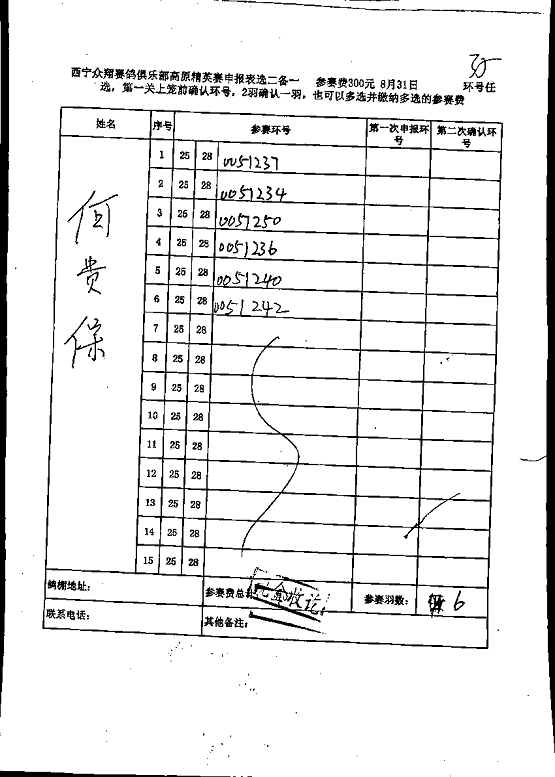 西宁众翔赛鸽俱乐部高原精英赛申报表选二备一 参赛费300元 8月31日 环号任
选，第一关上笼前确认环号，2羽确认一羽，也可以多选并缴纳多选的参赛费
姓名 序号 参赛环号 第一次申报环号 第二次确认环号
何贵保
1 25 28 0051237
2 25 28 0051234
3 25 28 0051250
4 25 28 0051236
5 25 28 0051240
6 25 28 0051242
7 25 28
8 25 28
9 25 28
10 25 28
11 25 28
12 25 28
13 25 28
14 25 28
15 25 28
鸽棚地址： 参赛费总 参赛羽数： 6
联系电话： 其他备注：